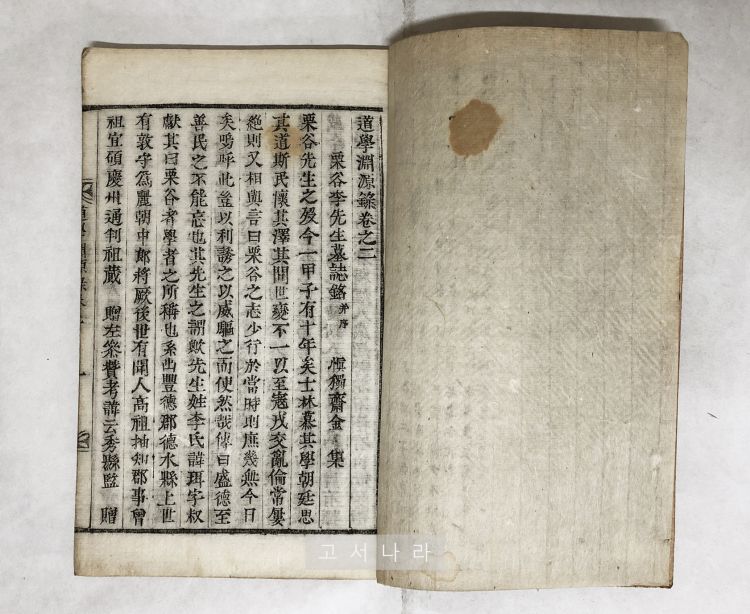 道學淵源錄卷之二
栗谷李先生墓誌銘 并序 愼獨齋金 集
栗谷先生之歿今一甲子有十年矣士林慕其學朝廷思
其道斯民懷其澤其間世變不一以至寇戎交亂倫常屢
絶則又相與言曰栗谷之志少行於當時則庶幾無今日
矣嗚呼此豈以利誘之以威驅之而使然哉傳曰盛德至
善民之不能忘也其先生之謂歟先生姓李氏諱珥字叔
獻其曰栗谷者學者之所稱也系出豐德郡德水縣上世
有敦守爲麗朝中郞將厥後世有聞人高祖抽知郡事曾
祖宜碩慶州通判祖蕆 贈左築贊考諱云秀縣監 贈
고서나라